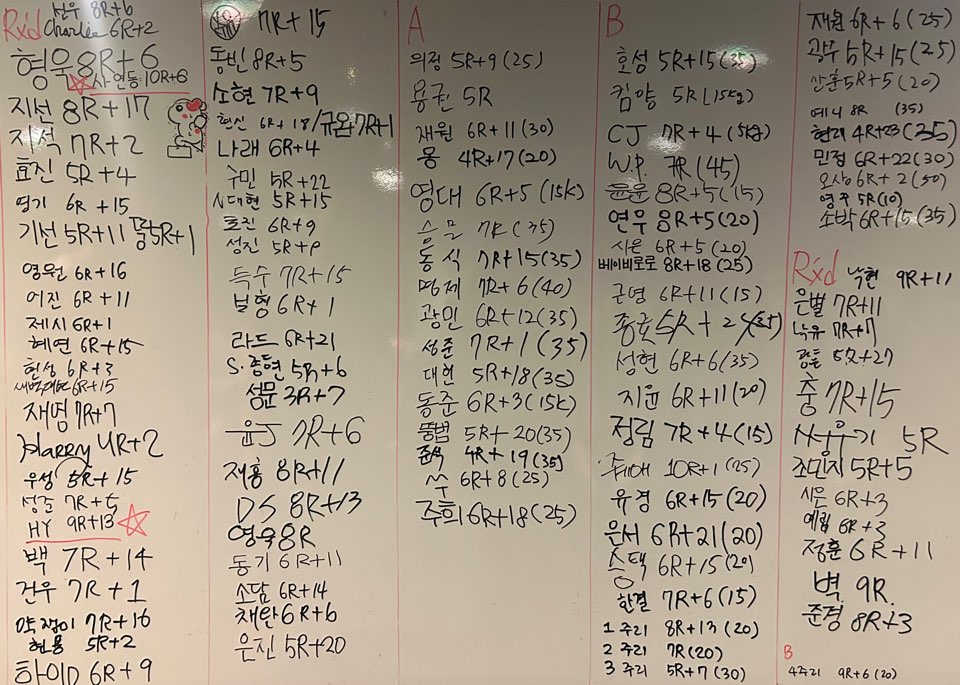 Rx'd
건우 8R+6
Charlie 6R+2
형욱 8R+6
사연등 10R+6
지선 8R+17
지석 7R+2
효진 5R+4
명기 6R+15
기선 5R+11 5R+1
영원 6R+16
어진 6R+11
제시 6R+1
혜연 6R+15
현상 6R+3
6R+15
재범 7R+7
Harry 4R+2
우성 5R+15
성준 7R+5
HY 9R+13
백 7R+14
건우 7R+1
약점이 7R+16
현용 5R+2
하이D 6R+9
7R+15
동빈 8R+5
소현 7R+9
현신 6R+18/규완 7R+1
나래 6R+4
수민 5R+22
시대현 5R+15
효진 6R+9
성진 5R+9
득수 7R+15
보형 6R+1
라드 6R+21
S.종형 5R+6
성문 3R+7
윤J 7R+6
재홍 8R+11
DS 8R+13
영욱 8R
동기 6R+11
소담 6R+14
채완 6R+6
은진 5R+20
A
의정 5R+9(25)
용권 5R
재원 6R+11(30)
몽 4R+17(20)
영대 6R+5(15k)
승문 7R(35)
동식 7R+15(35)
명제 7R+6(40)
광민 6R+12(35)
성준 7R+1(35)
대헌 5R+18(35)
동준 6R+3(15k)
뚱범 5R+20(35)
준석 4R+19(35)
쑤 6R+8(25)
주희 6R+18(25)
B
호성 5R+15(35)
킴양 5R(15kg)
CJ 7R+4(5kg)
W.P. 7R(45)
윤윤 8R+5(15)
연우 8R+5(20)
시은 6R+5(20)
베이비로로 8R+18(25)
근영 6R+11(15)
종훈 5R+24
성현 6R+6(35)
지윤 6R+11(20)
정림 7R+4(15)
10R+1(25)
유경 6R+15(20)
은서 6R+21(20)
승택 6R+15(20)
한결 7R+6(15)
1주리 8R+13(20)
2주리 7R(20)
3주리 5R+7(30)
재원 6R+6(25)
광우 5R+15(25)
산훈 5R+5(20)
예니 8R (35)
현리 4R+23(35)
민정 6R+22(30)
오상 6R+2(50)
영주 5R(10)
소박 6R+15(35)
Rx'd
낙현 9R+11
은별 7R+11
낙유 7R+7
5R+27
충 7R+15
서우기 5R
조민지 5R+5
시은 6R+3
예림 6R+3
정훈 6R+11
벽 9R
준경 8R+3
B
4주리 9R+6(20)